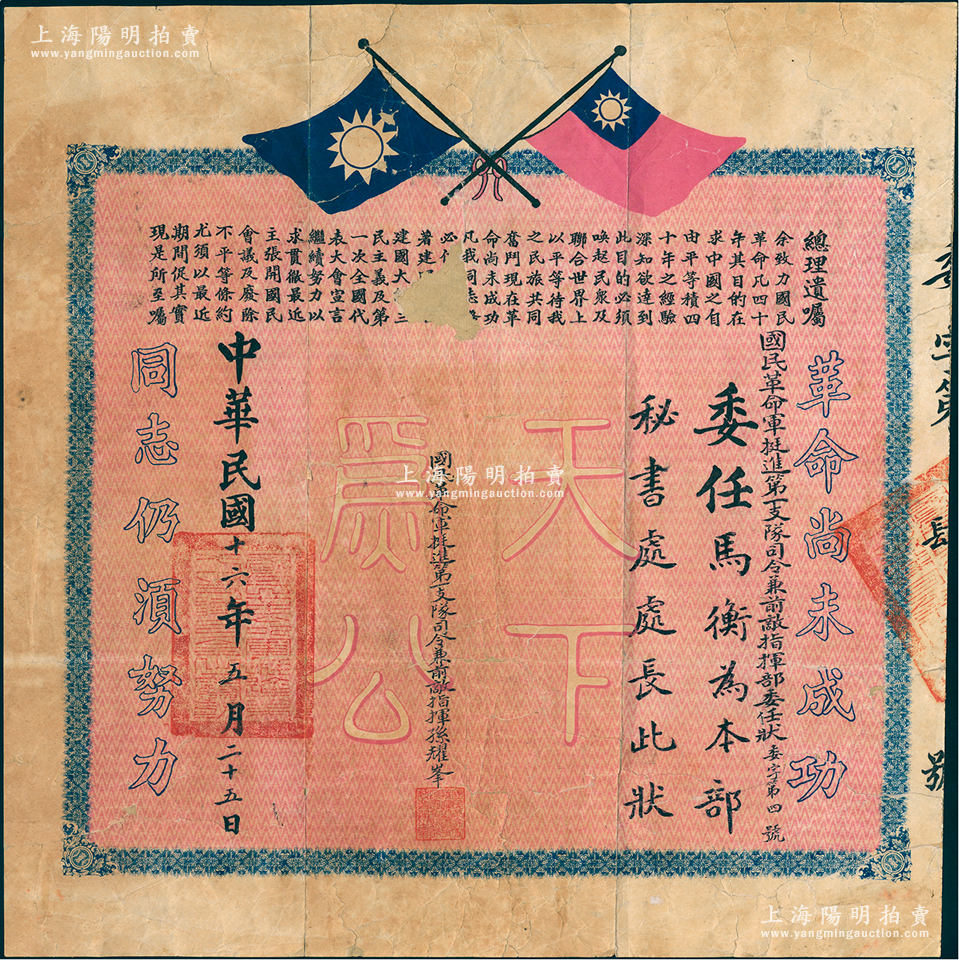 上海陽明拍賣
www.yangmingauction.com
總理遺囑
余致力國民
革命凡四十
年其目的在
求中國之自
由平等積四
十年之經驗
深知欲達到
此目的必須
喚起民眾及
聯合世界上
以平等待我
之民族共同
奮鬥現在革
命尚未成功
凡我同志
必
著建
建國大 三
民主義及第
一次全國代
表大會宣言
繼續努力以
求貫徹最近
主張開國民
會議及廢除
不平等條約
尤須以最近
期間促其實
現是所至囑
革命尚未成功
國民革命軍挺進第一支隊司令兼前敵指揮部委任狀 委字第四號
委任馬衡為本部
秘書處處長此狀
天下
為公
國民革命軍挺進第一支隊司令兼前敵指揮孫耀峯
中華民國十六年五月二十五日
同志仍須努力
委字第
號
上海陽明拍賣
www.yangmingauction.com
上海陽明拍賣
www.yangmingauction.com